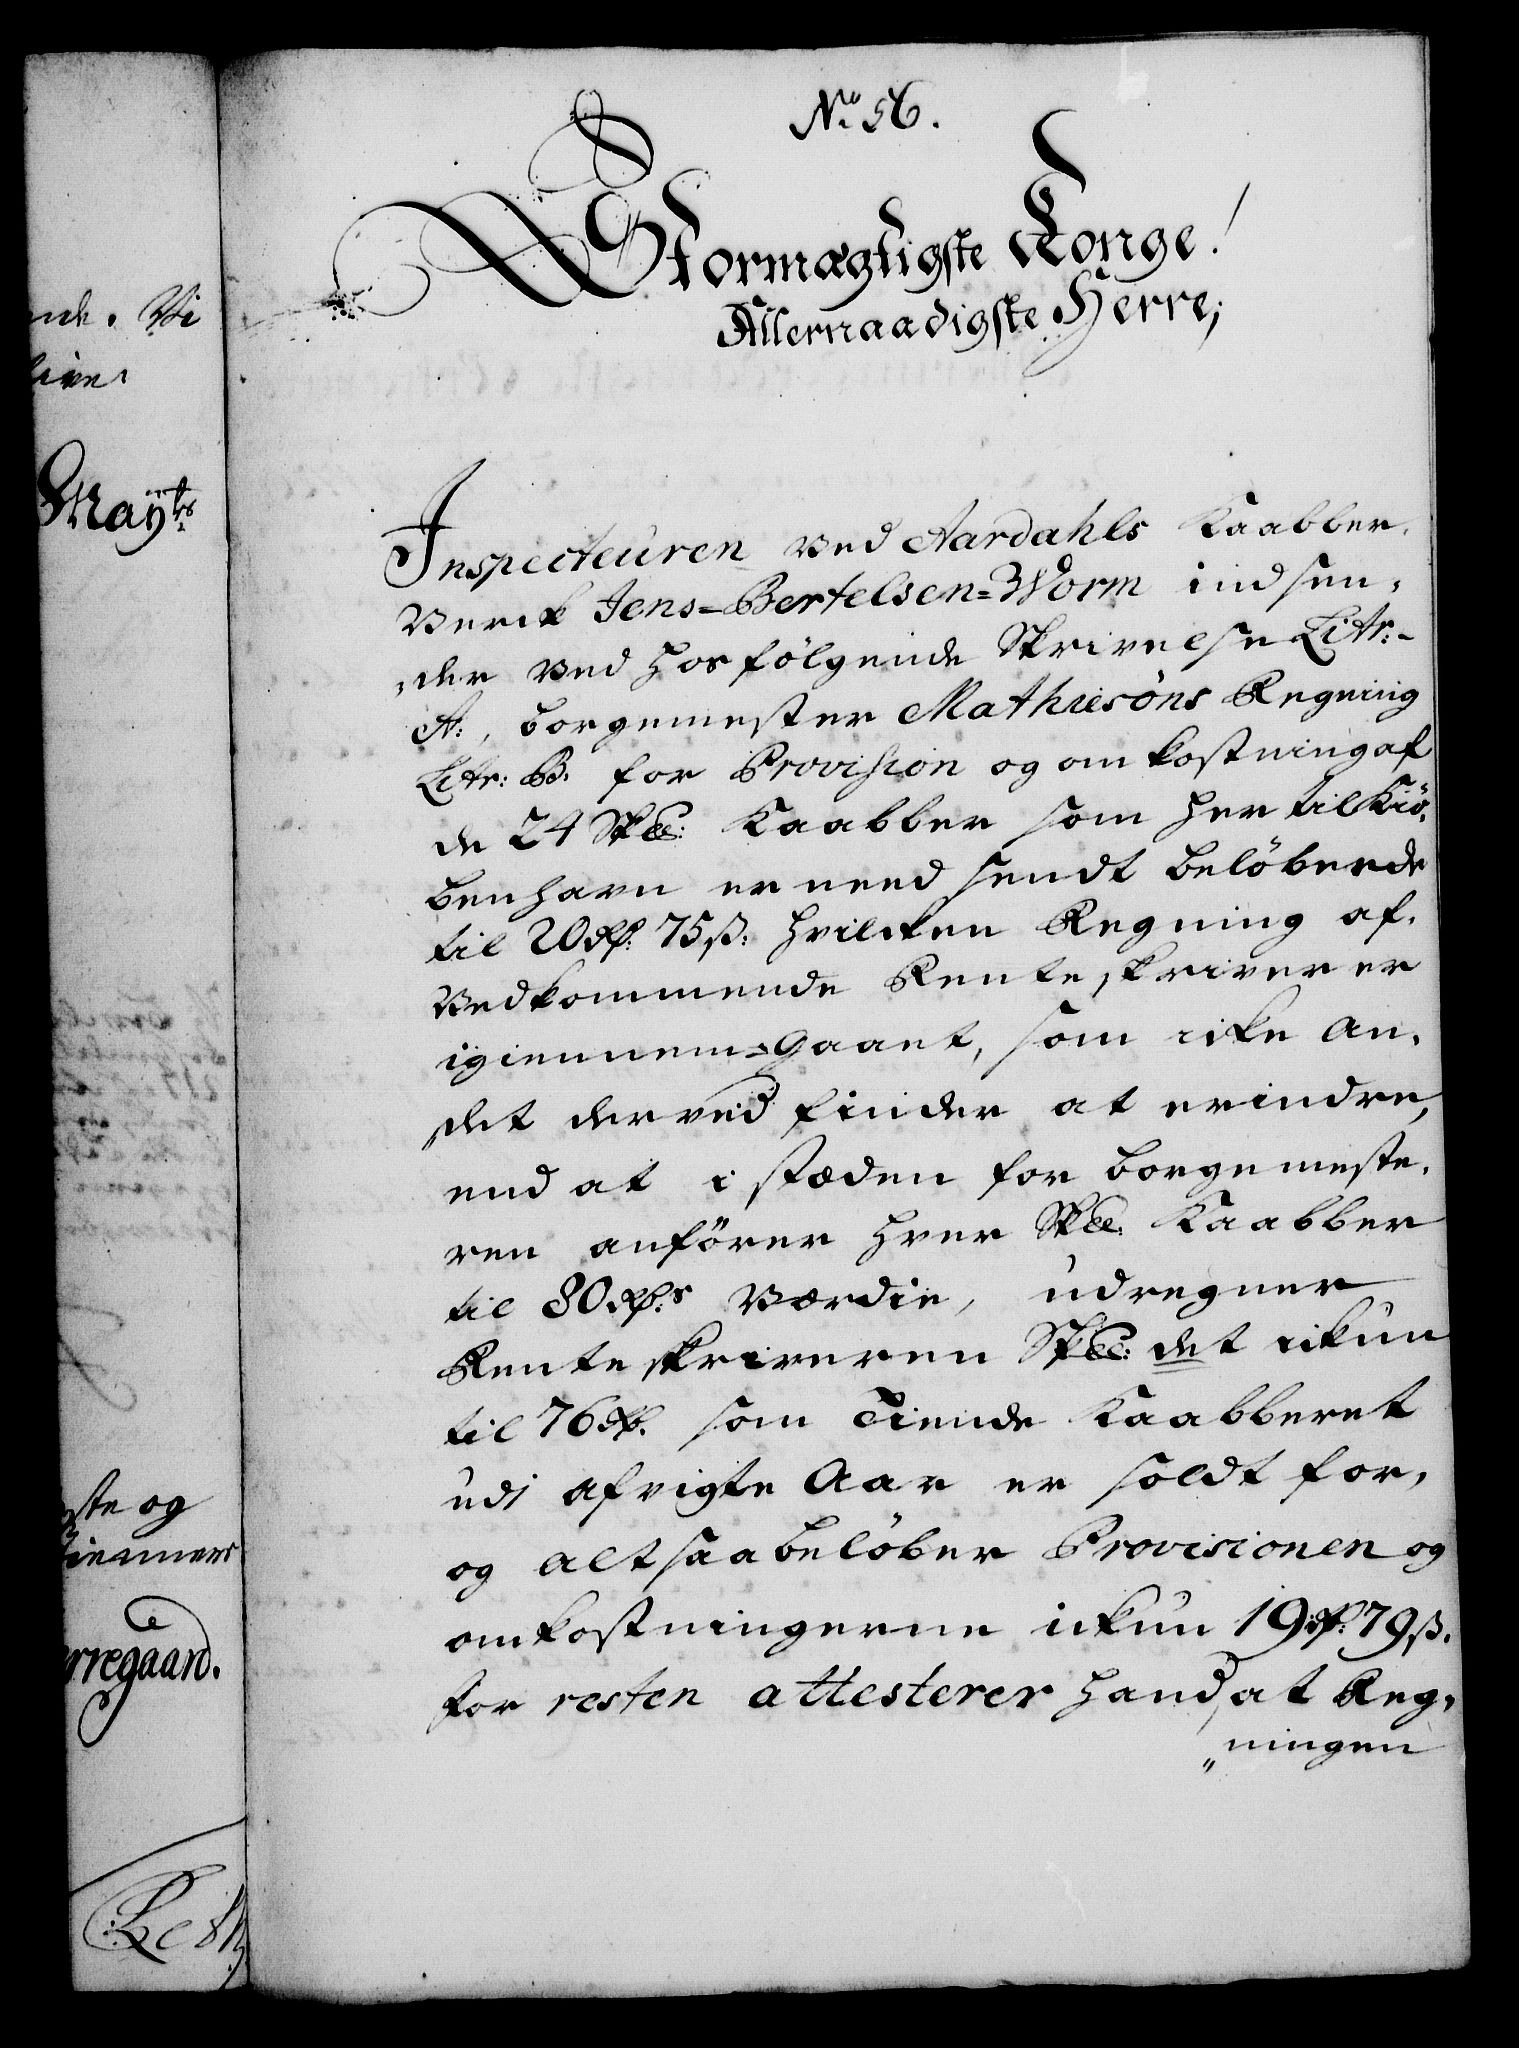 No. 56.
Stormægtigste Konge!
Allernaadigste Herre;
Inspecteuren ved Aardahls Kaabber-
Verck Jens-Bertelsen-Worm indsen-
der ved hosfølgende Skrivelse Litr:
A:, borgemester Mathiesøns Regning
Litr: B. for Provision og omkostning af
de 24 Sk℔: Kaabber som her til Kiø-
benhavn er need sendt beløbende
til 20 rd: 75 ß: hvilcken Regning af
Vedkommende Renteskriver er
igiennem-gaaet, som icke an-
det derved finder at erindre,
end at i stæden for borgemeste-
ren anfører hver Sk℔: Kaabber
til 80 rd:s Værdie, udregner
Renteskriveren Sk℔: det ickun
til 76 rd. som Tiende Kaabberet
udi afvigte Aar er soldt for,
og altsaa beløber Provisionen og
omkostningerne ickun 19 rd: 79 ß.
for resten attesterer hand, at Reg-
ningen
nde. Vi
live
Mayts
ste og
Tiennere
rregaard.